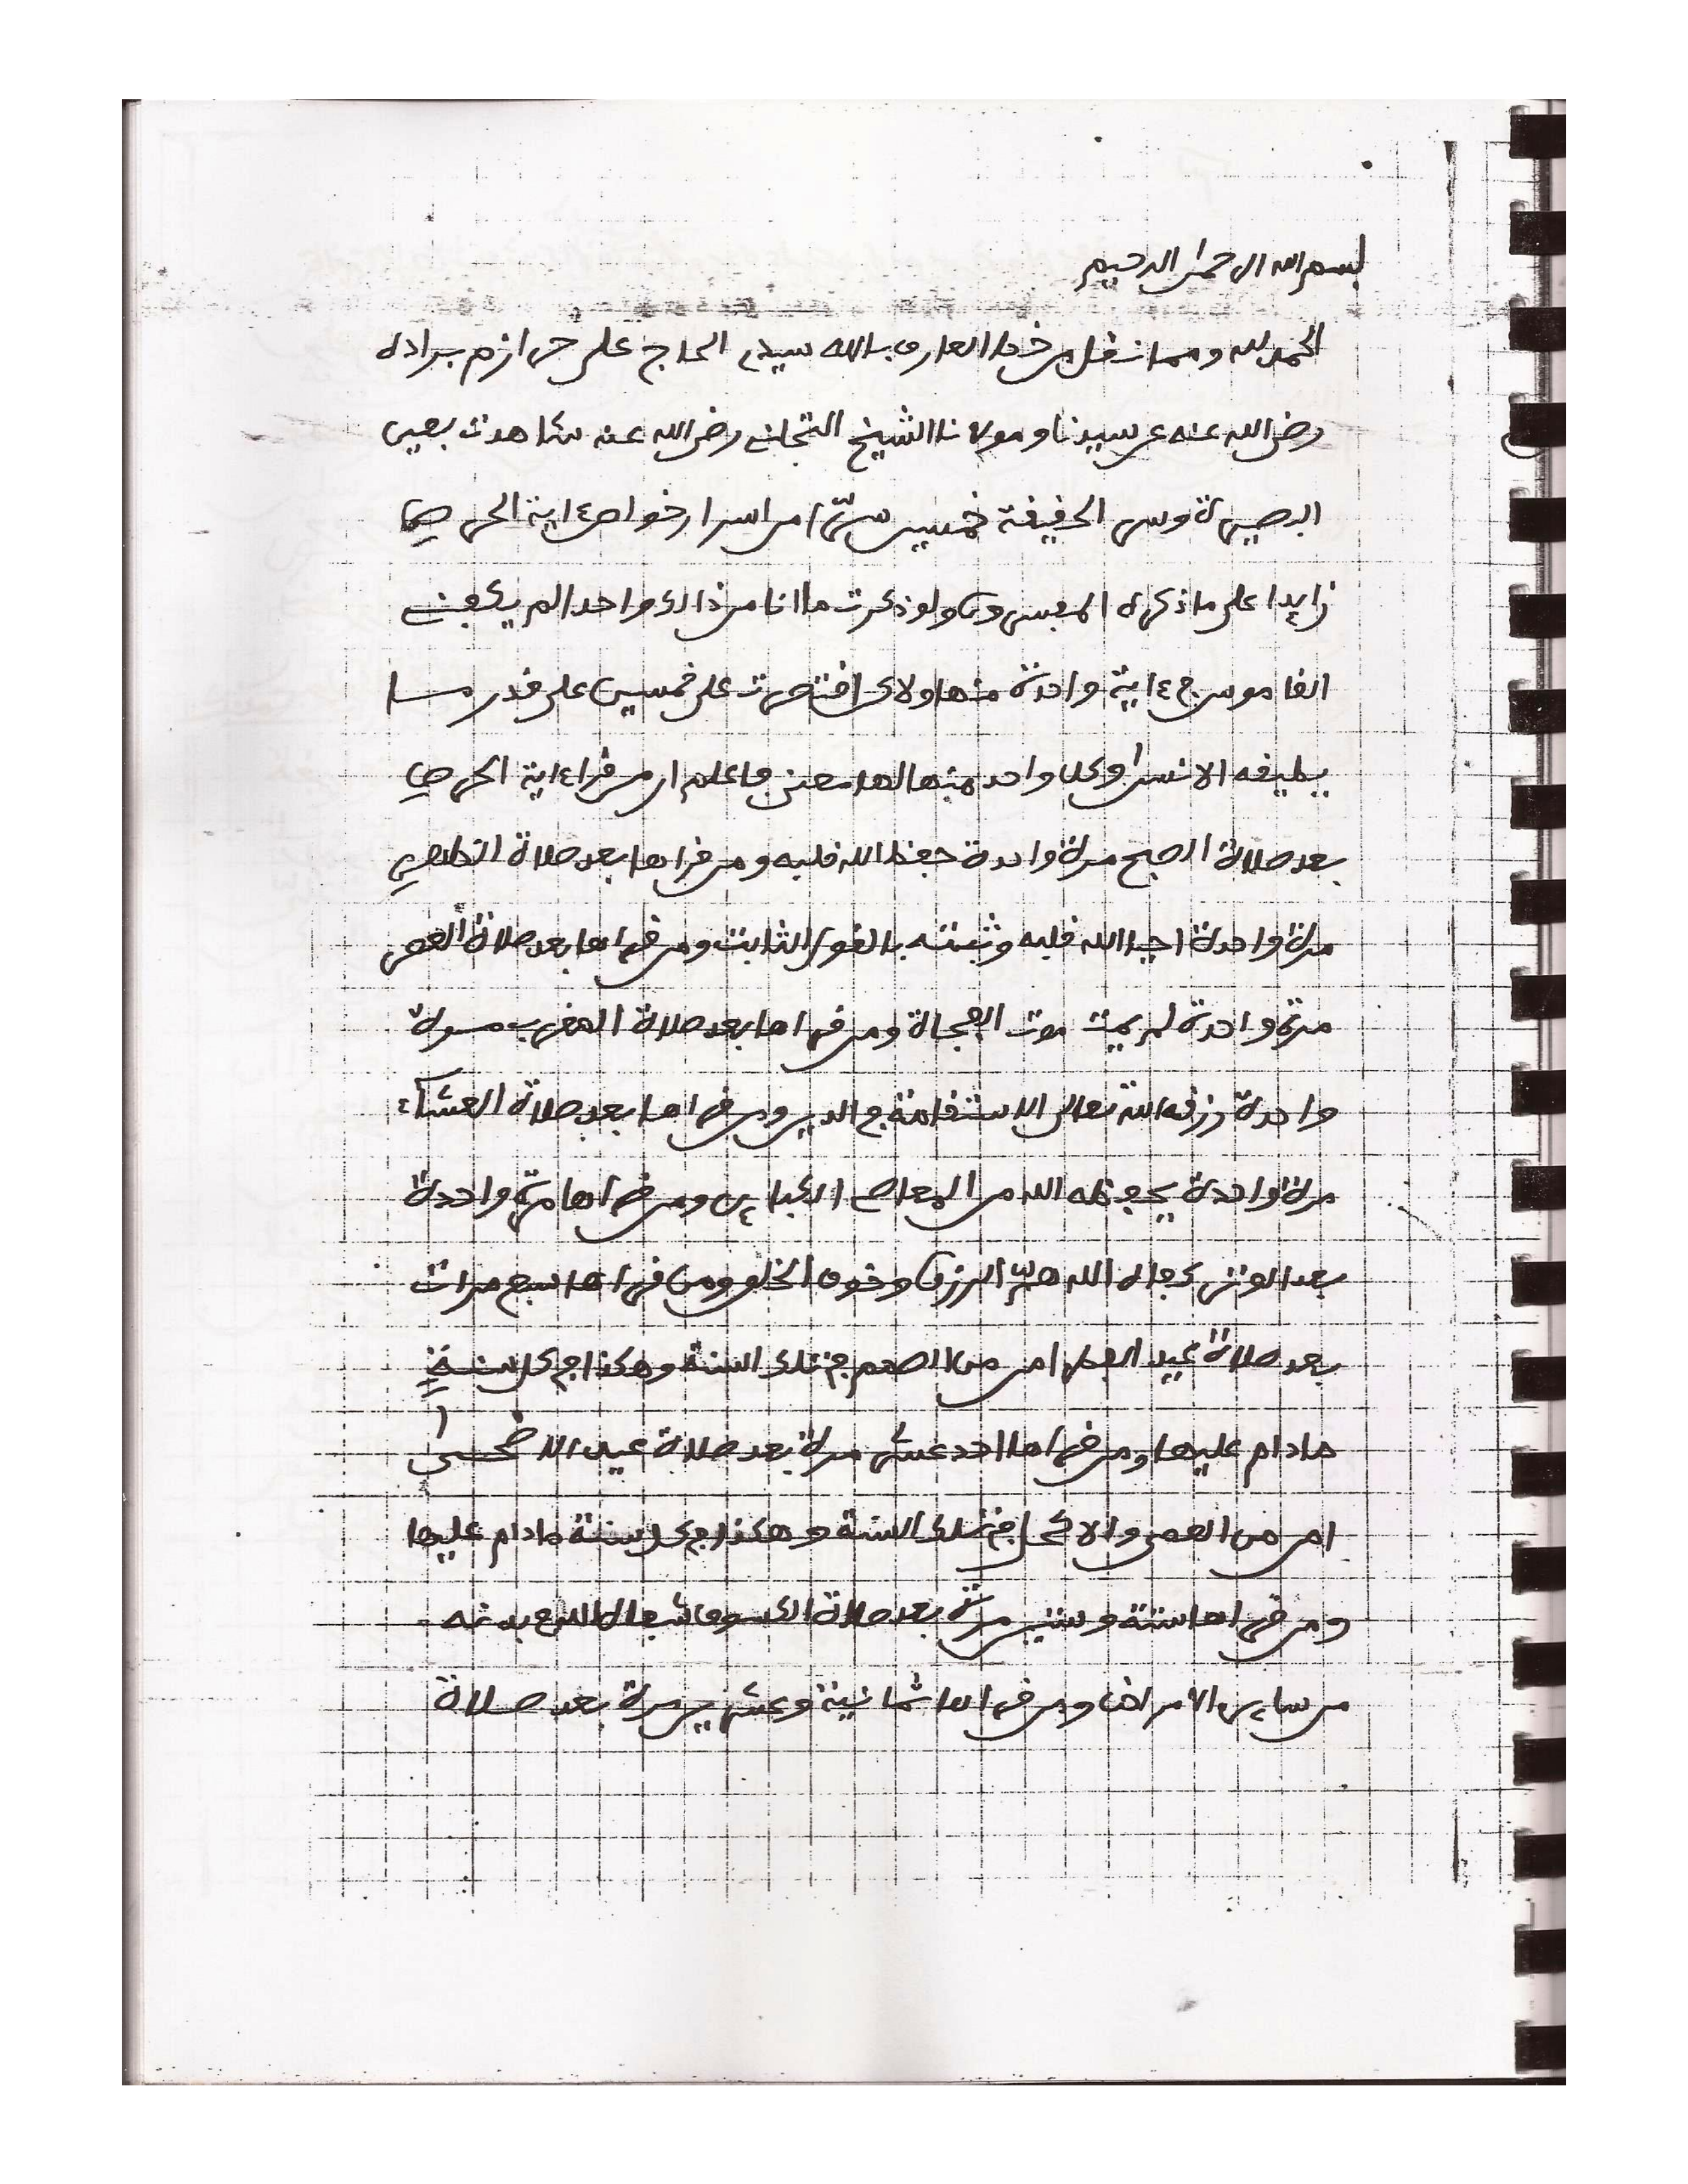 بسم الله الرحمن الرحيم
الحمد لله ومما نقل من خط العارف بالله سيدي الحاج علي حرازم برادة
رضي الله عنه عن سيدنا ومولانا الشيخ التجاني رضي الله عنه شاهدت بعين
البصيرة وسر الحقيقة خمسين سرا من اسرار خواص ءاية الحرص
زايدا على ما ذكره المفسرون ولو ذكرت ما انا من ذالك واحدا لم يكفني
القاموس في ءاية واحدة منها ولاكن اقتصرت على خمسين على قدر ما
يطيقه الانسان وكل واحد منها لها معنى فاعلم ان من قرا ءاية الحرص
بعد صلاة الصبح مرة واحدة حفظ الله قلبه ومن قراها بعد صلاة الظهر
مرة واحدة احيا الله قلبه وثبته بالقول الثابت ومن قراها بعد صلاة العصر
مرة واحدة لم يمت موت الفجاة ومن قراها بعد صلاة المغرب مرة
واحدة رزقه الله تعالى الاستقامة في الدين ومن قراها بعد صلاة العشاء
مرة واحدة يحفظه الله من المعاصي الكباير ومن قراها مرة واحدة
بعد الوتر كفاه الله هم الرزق وخوف الخلق ومن قراها سبع مرات
بعد صلاة عيد الفطر امن من الصمم في تلك السنة وهكذا في كل سنة
مادام عليها ومن قراها احد عشر مرة بعد صلاة عيد الاضحى
امن من العمى والاكحل في تلك السنة وهكذا في كل سنة مادام عليها
ومن قراها ستة وستين مرة بعد صلاة الكسوف شفاه الله في بدنه
من ساير الامراض ومن قراها ثمانية وعشرين مرة بعد صلاة